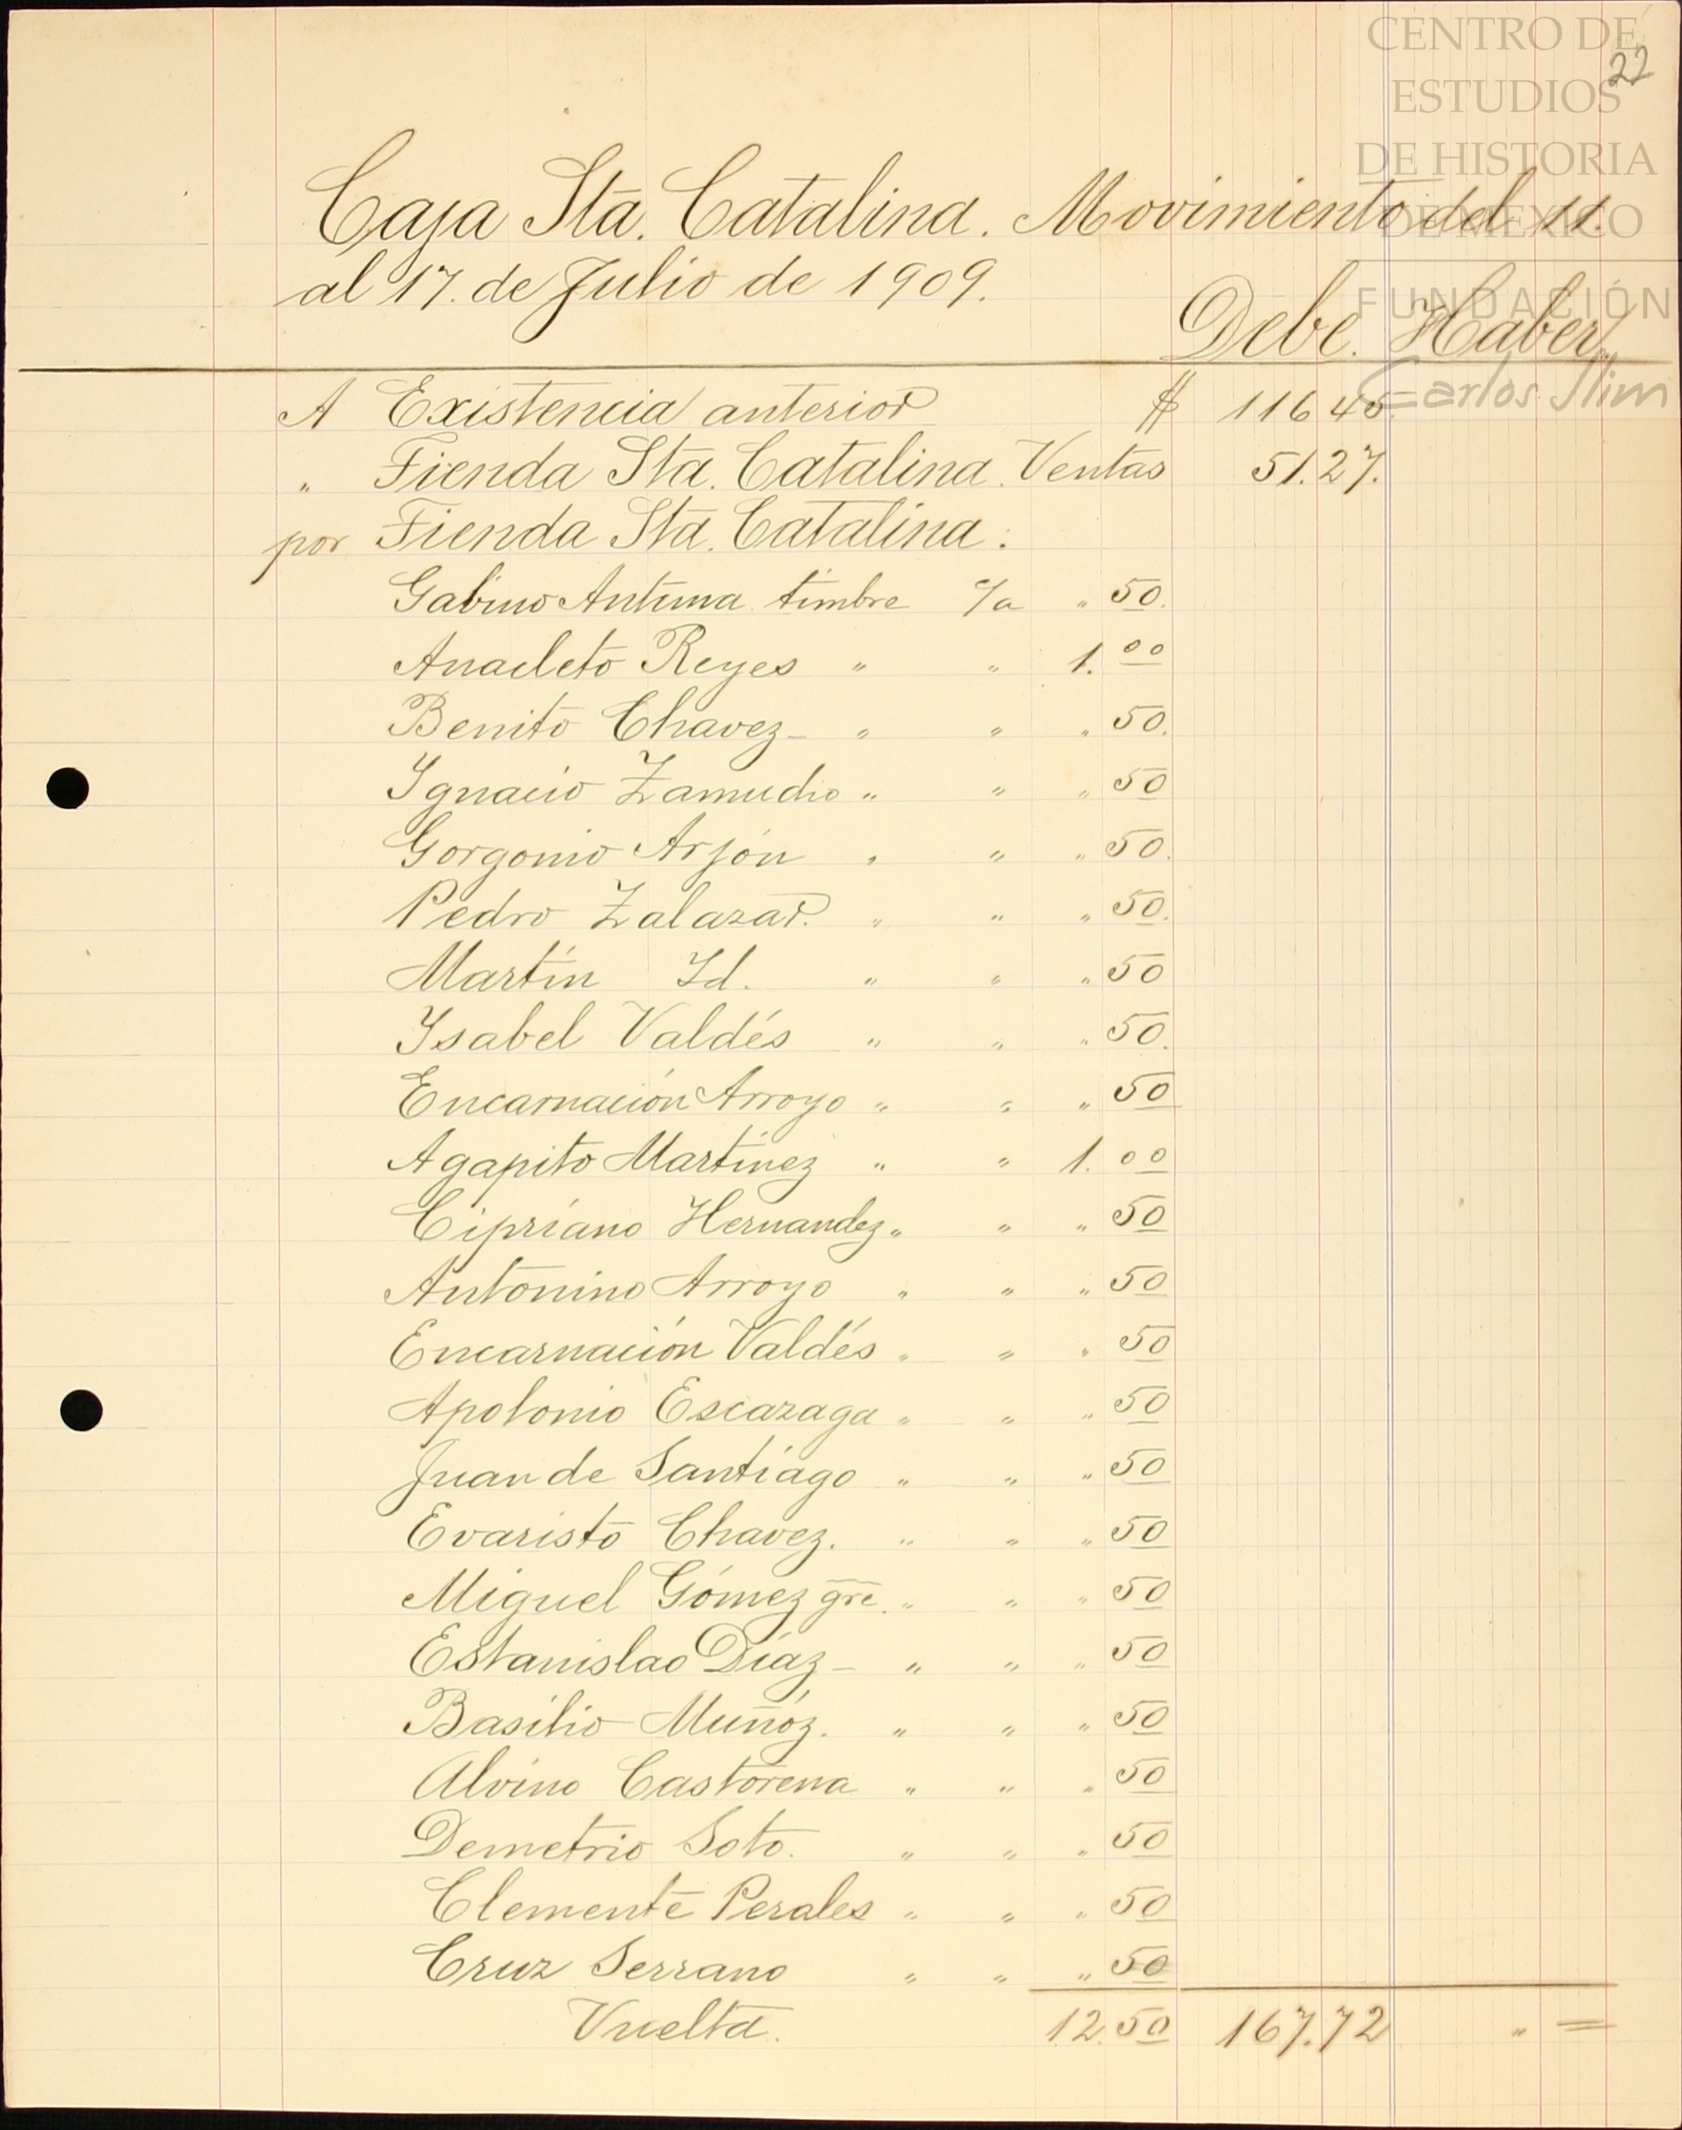 CENTRO DE
ESTUDIOS
DE HISTORIA
DE MÉXICO
FUNDACIÓN
Carlos Slim
22
Caja Sta. Catalina. Movimiento del 11.
al 17. de Julio de 1909.
Debe. Haber.
A Existencia anterior $ 116 45.
" Tienda Sta. Catalina. Ventas 51.27.
por Tienda Sta. Catalina.
Gabino Antuna timbre c/a " 50.
Anacleto Reyes " " 1. 00
Benito Chavez " " " 50.
Ygnacio Zamudio " " " 50
Gorgonio Arjón " " " 50.
Pedro Zalazar. " " " 50.
Martín Yd. " " " 50
Ysabel Valdés " " " 50.
Encarnación Arroyo " " " 50
Agapito Martínez " " 1. 00
Cipriano Hernandez " " " 50
Antonino Arroyo " " " 50
Encarnación Valdés " " " 50
Apolonio Escazaga " " " 50
Juan de Santiago " " " 50
Evaristo Chavez. " " " 50
Miguel Gómez gre. " " " 50
Estanislao Díaz " " " 50
Basilio Muñóz. " " " 50
Alvino Castorena " " " 50
Demetrio Soto. " " " 50
Clemente Perales " " " 50
Cruz Serrano " " " 50
Vuelta. 12.50 167.72 " =